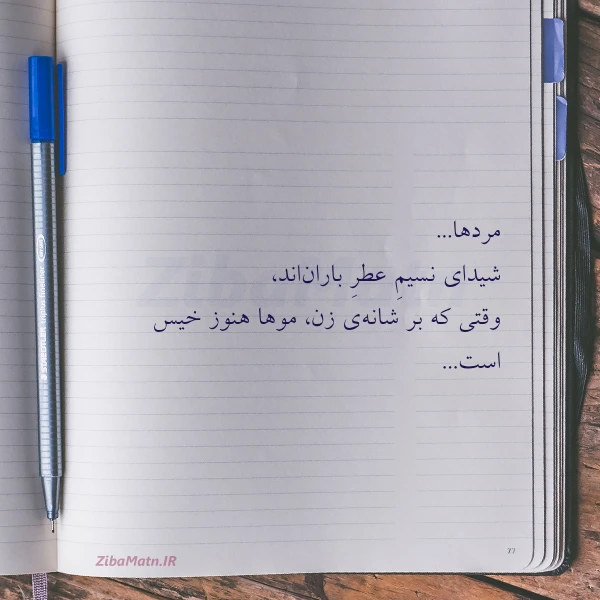 مردها...
شیدای نسیمِ عطرِ باران‌اند،
وقتی که بر شانه‌ی زن، موها هنوز خیس
است...
ZibaMatn.IR